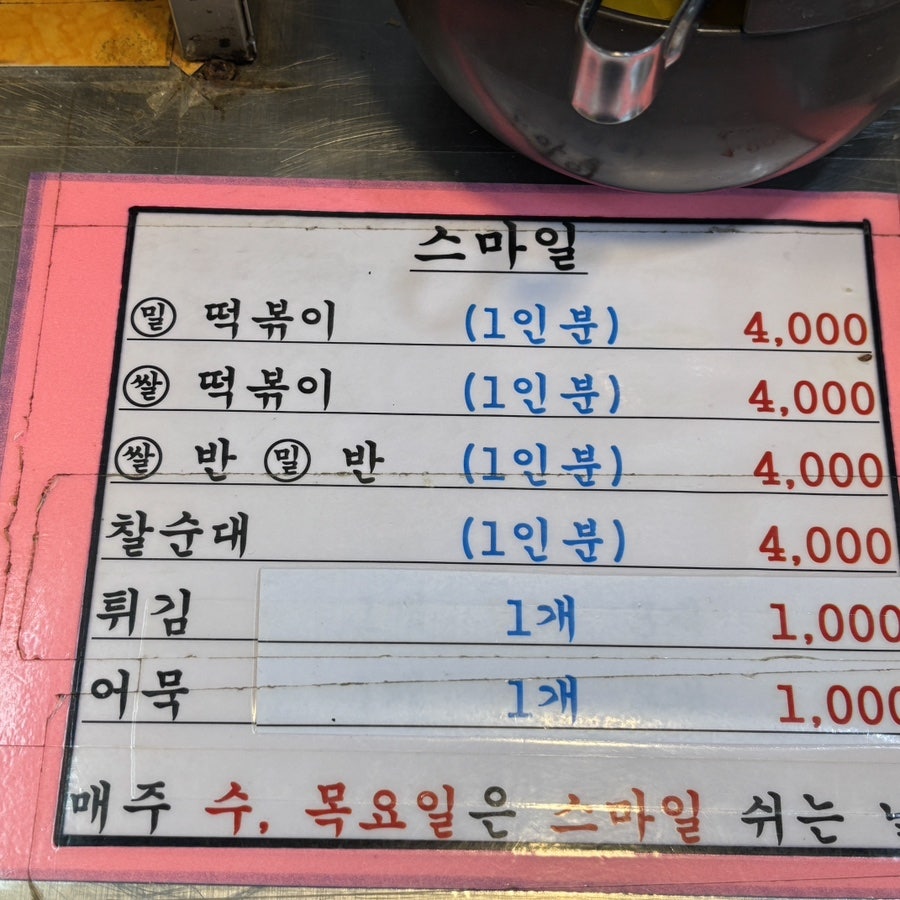 스마일
밀 떡볶이 (1인분) 4,000
쌀 떡볶이 (1인분) 4,000
쌀 반 밀 반 (1인분) 4,000
찰순대 (1인분) 4,000
튀김 1개 1,000
어묵 1개 1,000
매주 수, 목요일은 스마일 쉬는